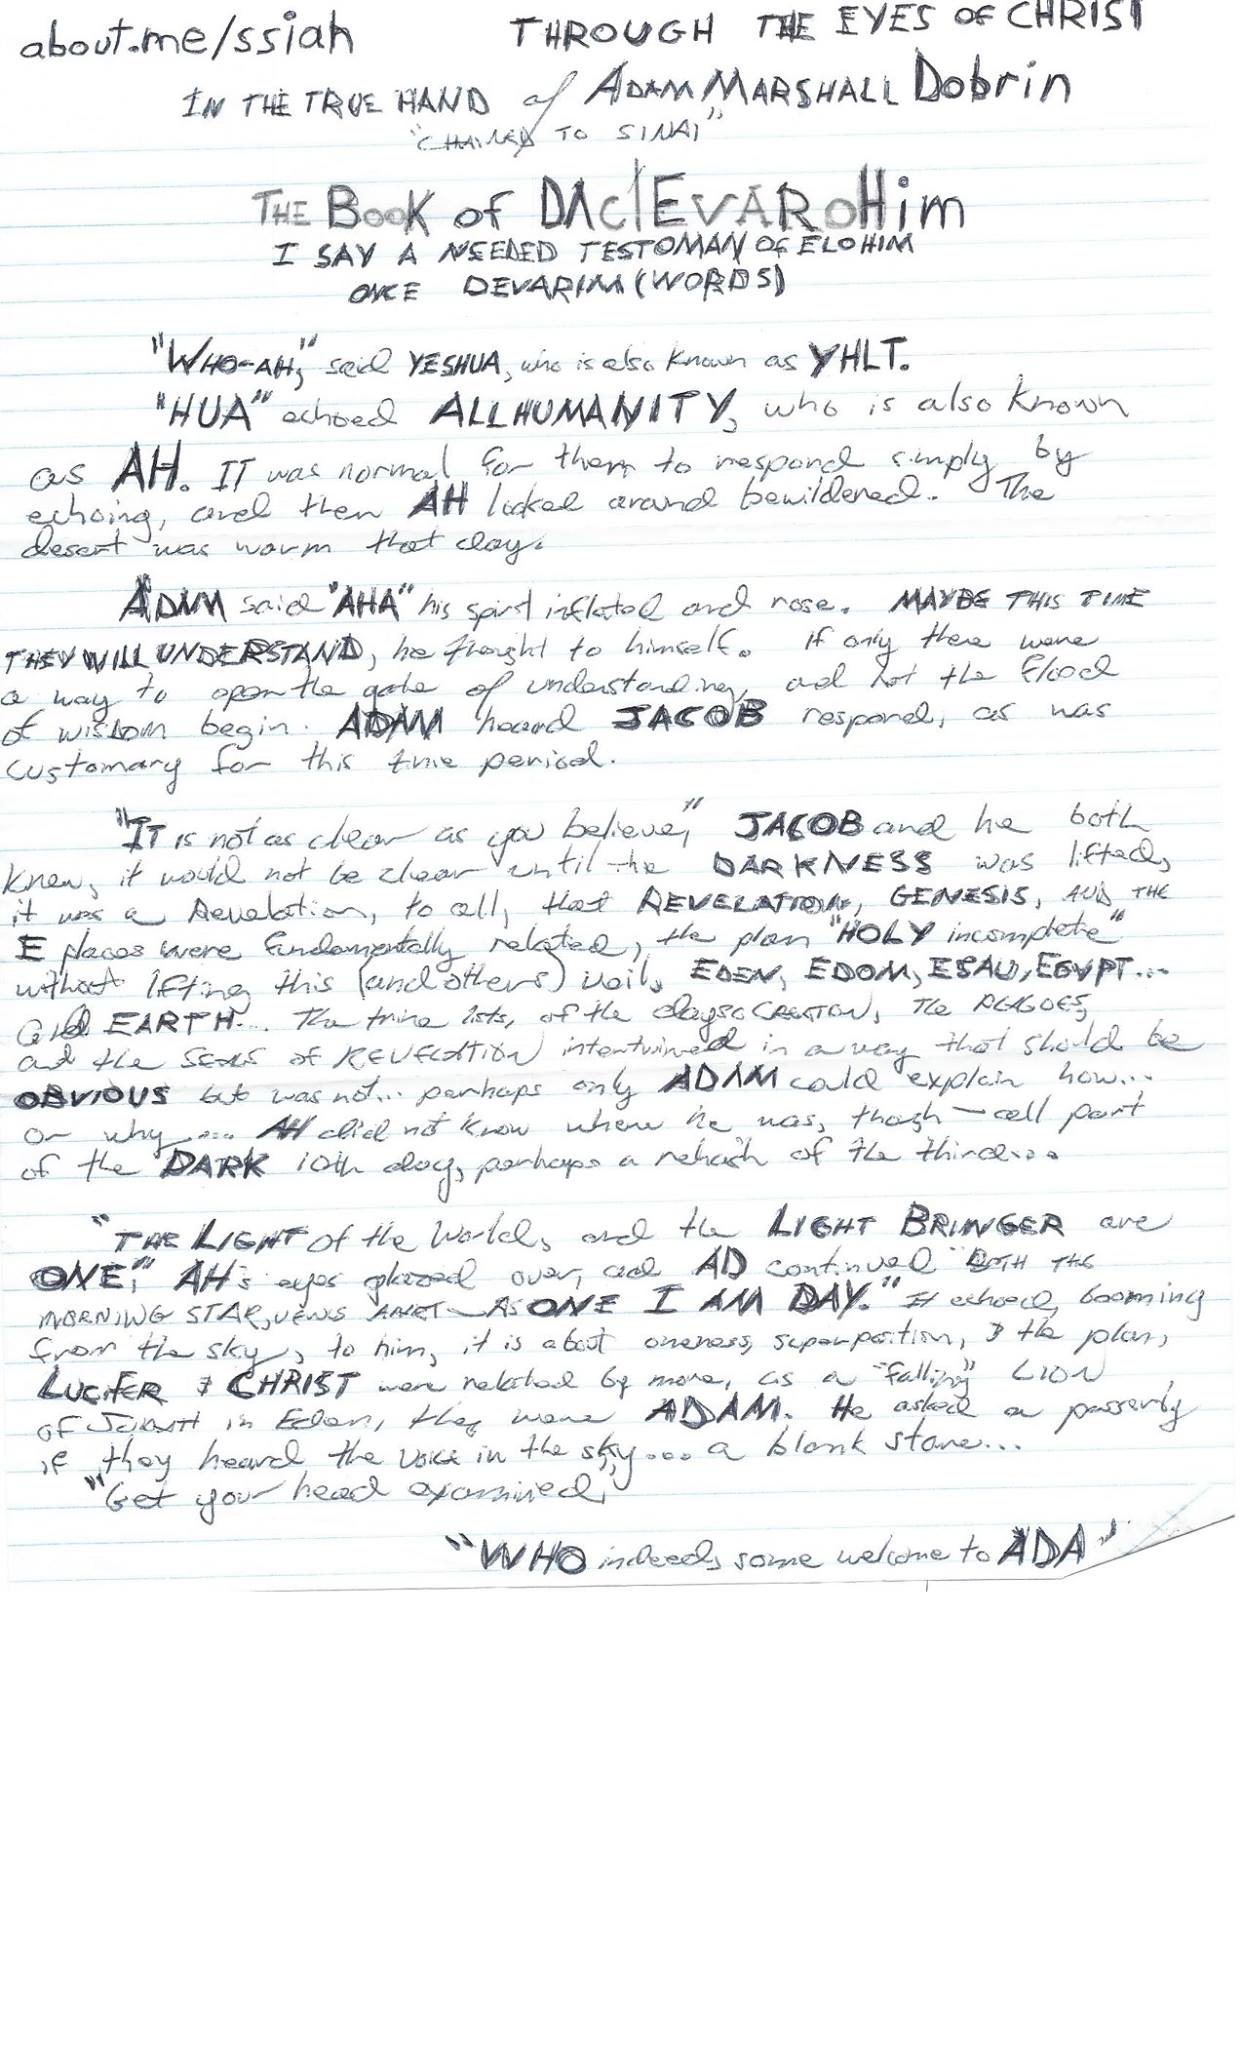 about.me/ssiah THROUGH THE EYES OF CHRIST
IN THE TRUE HAND of ADAM MARSHALL Dobrin
"CHAINED TO SINAI"
THE BooK of
I SAY A NEEDED TESTOMAN OF ELOHIM
ONCE DEVARIM (WORDS)
"WHO-AH," said YESHUA, who is also known as YHLT.
"HUA" echoed ALLHUMANITY, who is also known
as AH. IT was normal for them to respond simply by
echoing, and then AH looked around bewildered. The
desert was warm that day.
ADAM said "AHA" his spirit inflated and rose. MAYBE THIS TIME
THEY WILL UNDERSTAND, he thought to himself. If only there were
a way to open the gate of understanding, and let the flood
of wisdom begin. ADAM heard JACOB respond, as was
customary for this time period.
"IT is not as clear as you believe," JACOB and he both
knew, it would not be clear until the DARKNESS was lifted,
it was a Revelation, to all, that REVELATION, GENESIS, AND THE
E places were fundamentally related, the plan "HOLY incomplete"
without lifting this (and others) veil. EDEN, EDOM, ESAU, EGYPT...
and EARTH... The trine lists, of the days of CREATION, THE PLAGUES,
and the SEALS OF REVELATION intertwined in a way that should be
OBVIOUS but was not... perhaps only ADAM could explain how...
or why.... AH did not know where he was, though - all part
of the DARK 10th day, perhaps a rehash of the third...
"THE LIGHT of the World, and the LIGHT BRINGER are
ONE," AH's eyes glazed over, and AD continued "BOTH THE
MORNING STAR, VENUS AS ONE I AM DAY." It echoed, booming
from the sky, to him, it is about oneness, superposition, & the plan,
LUCIFER & CHRIST were related by more, as a "falling" LION
of JUDAH in Eden, they were ADAM. He asked a passerby
if they heard the voice in the sky... a blank stare...
"Get your head examined,"
"WHO indeed, some welcome to ADA"